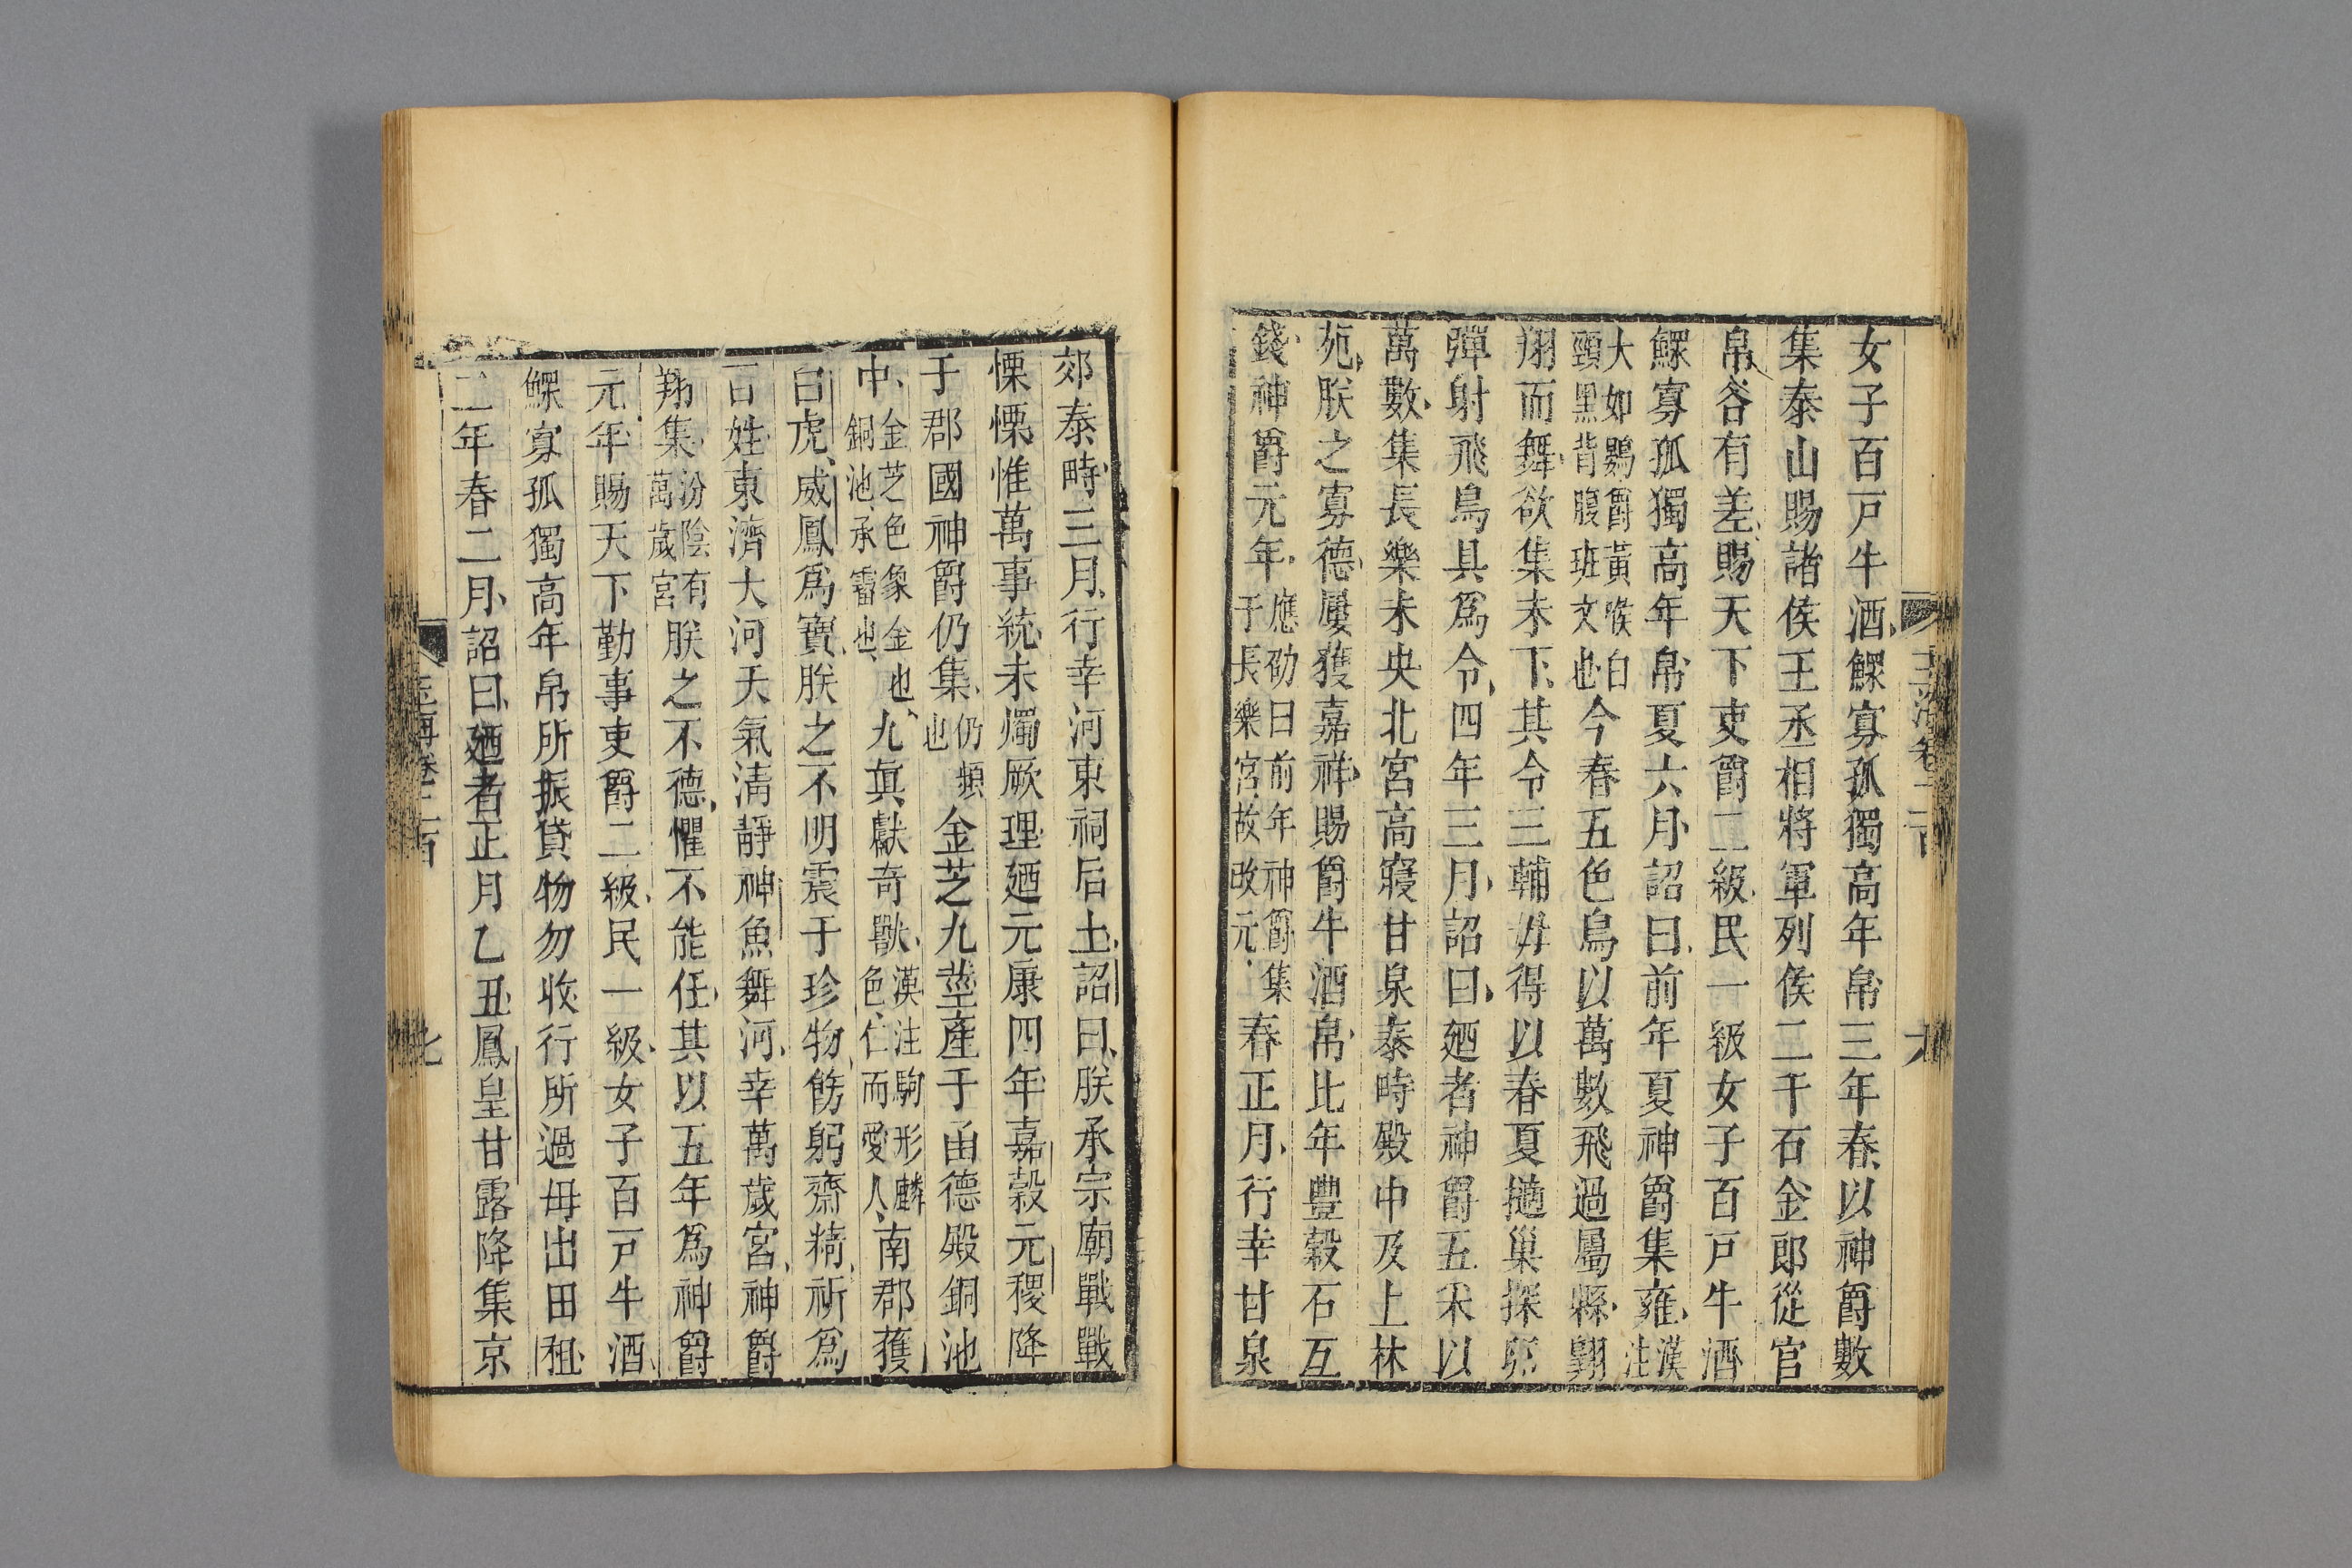 女子百戸牛酒鰥寡孤獨高年帛三年春以神爵數
集泰山賜諸侯王丞相將軍列侯二千石金郎從官
帛各有差賜天下吏爵二級民一級女子百戸牛酒
鰥寡孤獨高年帛夏六月詔曰前年夏神爵集雍漢注
大如鷃爵黃喉白頸黑背腹班文也今春五色鳥以萬數飛過屬縣翺
翔而舞欲集未下其令三輔毋得以春夏擿巢探卵
彈射飛鳥具爲令四年三月詔曰廼者神爵五采以
萬數集長樂未央北宮高寢甘泉泰畤殿中及上林
苑朕之寡德屢獲嘉祥賜爵牛酒帛比年豐穀石五
錢神爵元年應劭曰前年神爵集于長樂宮故改元春正月行幸甘泉
郊泰畤三月行幸河東祠后土詔曰朕承宗廟戰戰
慄慄惟萬事統未燭厥理廼元康四年嘉穀元稷降
于郡國神爵仍集仍頻也金芝九莖產于函德殿銅池
中金芝色象金也銅池承霤也九眞獻奇獸漢注駒形麟色仁而愛人南郡獲
白虎威鳳爲寶朕之不明震于珍物飭躬齋精祈爲
百姓東濟大河天氣淸靜神魚舞河幸萬歲宮神爵
翔集汾陰有萬歲宮朕之不德懼不能任其以五年爲神爵
元年賜天下勤事吏爵二級民一級女子百戸牛酒
鰥寡孤獨高年帛所振貸物勿收行所過毋出田租
二年春二月詔曰廼者正月乙丑鳳皇甘露降集京